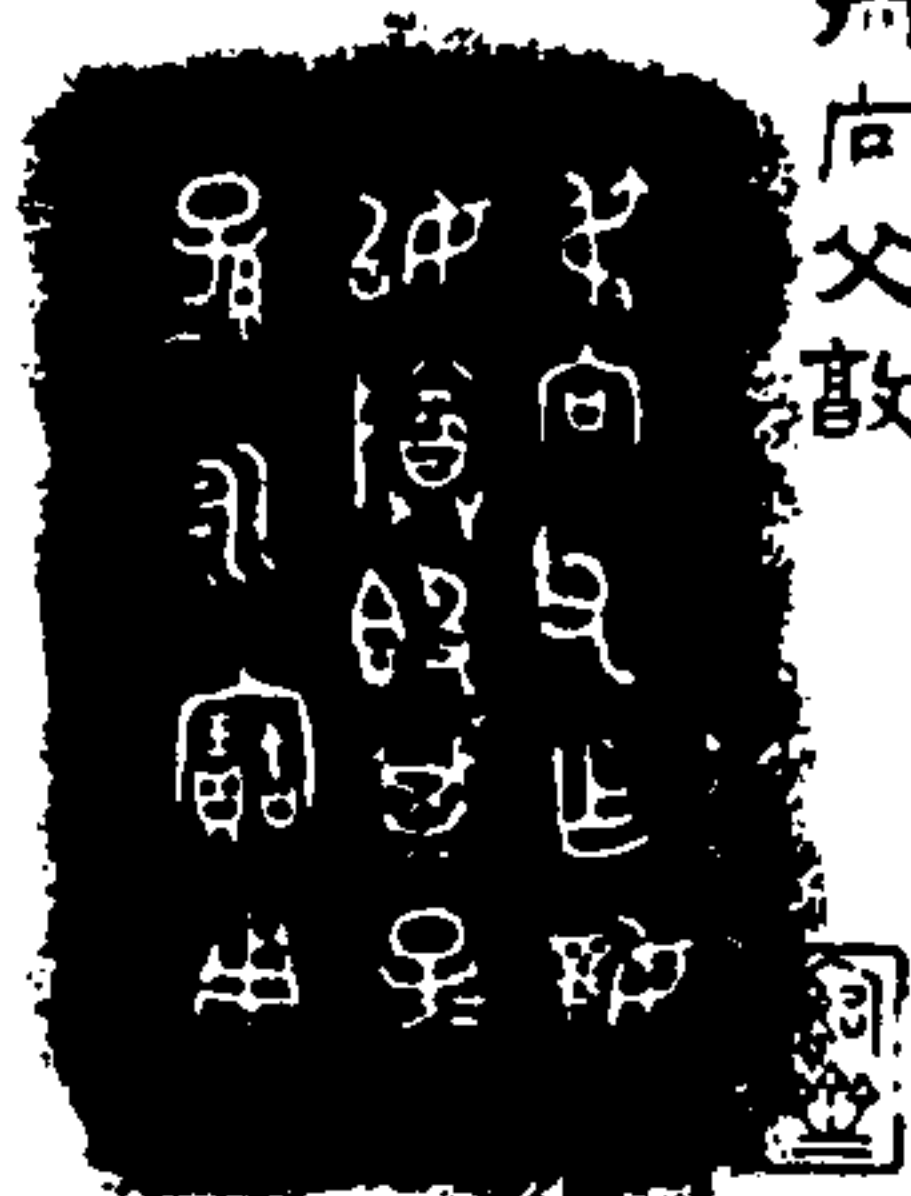 向父敦
叔向父乍婞
姒尊簋其子〓
孫〓永寶用